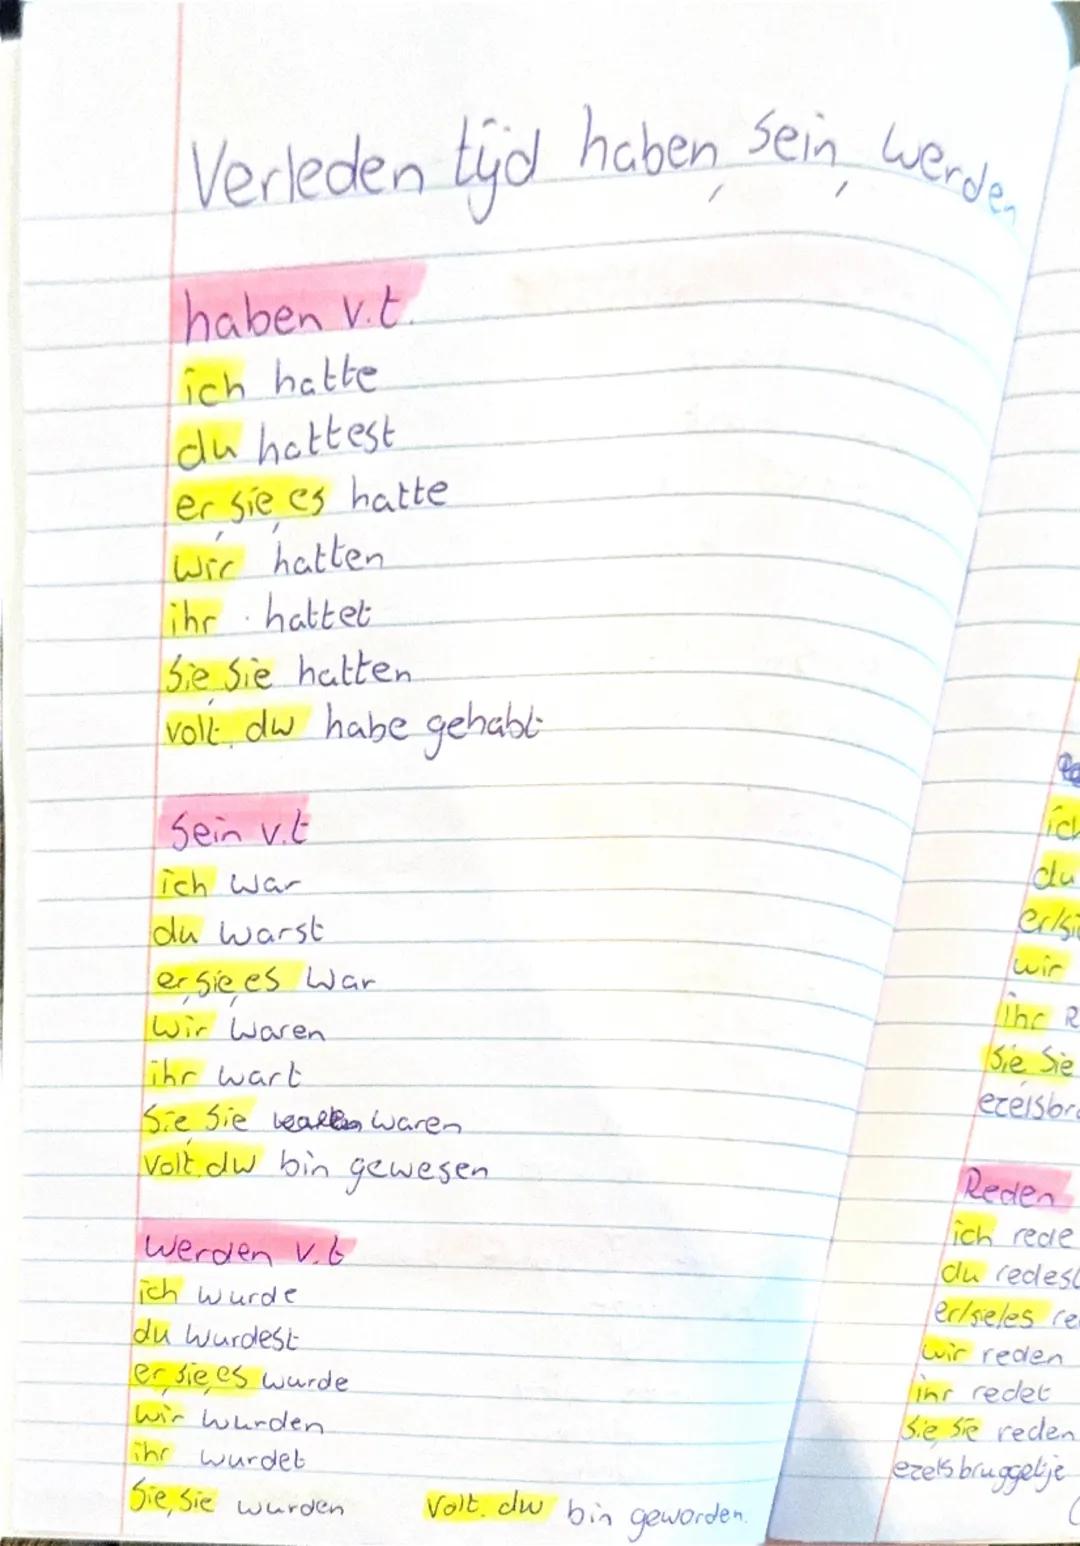 Verleden tijd haben, sein, werden
haben v.t.
ich hatte
du hattest
er, sie, es hatte
wir hatten
ihr hattet
Sie, sie hatten
volt. dw habe gehabt
Sein v.t
ich war
du warst
er, sie, es war
wir waren
ihr wart
Sie, Sie waren
Volt. dw bin gewesen
werden v.t
ich wurde
du wurdest
er, sie, es wurde
wir wurden
ihr wurdet
Sie, Sie wurden Volt. dw bin geworden.
ich
du
er/sie
wir
ihr R
Sie Sie
ezelsbr
Reden
ich rede
du redest
er/sie/es re
wir reden
ihr redet
Sie, sie reden
ezelsbruggetje